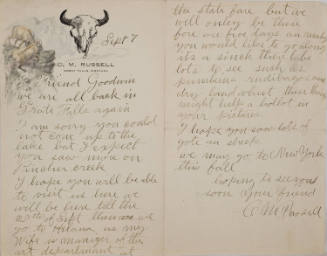 C. M. RUSSELL
GREAT FALLS, MONTANA
Sept 7
Friend Goodwin
we are all back in
Great Falls again
I am sorry you could
not come up to the
Lake but I expect
you saw more on
creek
I hope you will be able
to visit us here we
will be here till the
of Sept then we
go to Helena as my
Wife is manager of the
art department at
the state fare but we
will only be there
fore or five days an maby
you would like to go along
its a sinch they lots
lots to see such as
pumkins
dry land wheat these things
might help a lot
your pictures
I hope you saw lots of
gote an sheep
we may go to New York
this fall
hoping to see you
soon Your friend
C M Russell